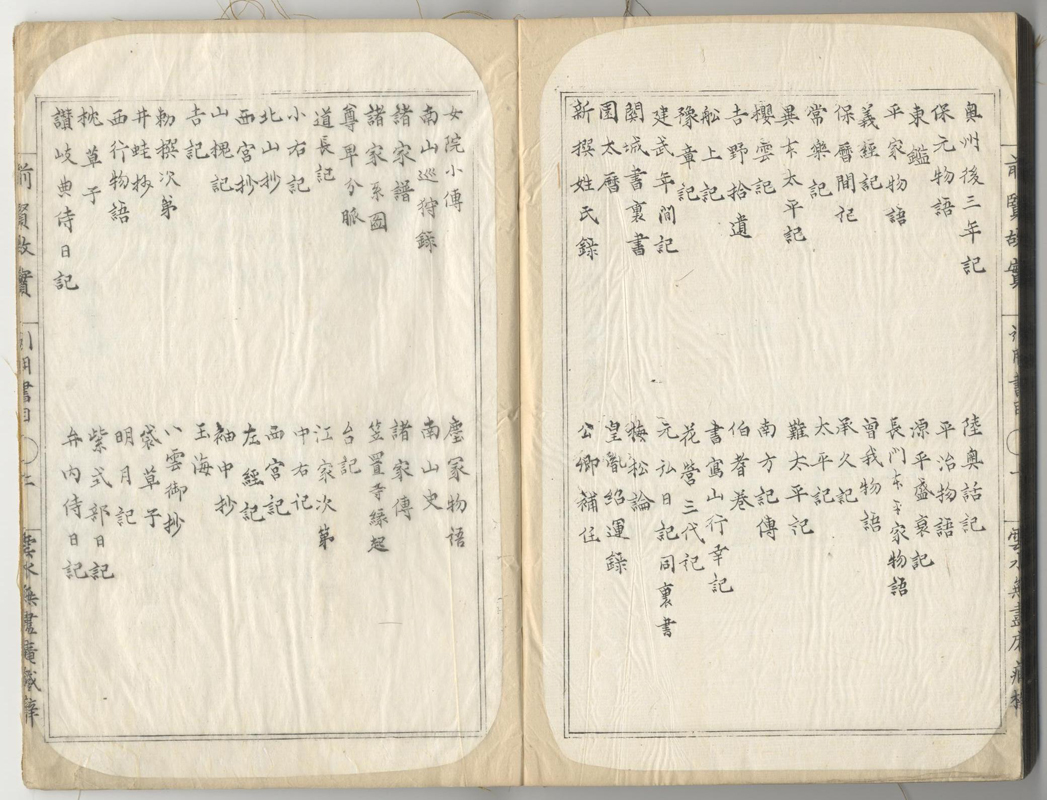 前賢故實
奥州後三年記　陸奥話記
保元物語　平治物語
東鑑　源平盛衰記
平家物語　長門本平家物語
義經記　曽我物語
保暦間記　承久記
常樂記　太平記
異本太平記　難太平記
櫻雲記　南方記傳
吉野拾遺　伯耆巻
船上記　書寫山行幸記
豫章記　花營三代記
建武年間記　元弘日記同裏書
關城書裏書　梅松論
園太暦　皇胤紹運録
新撰姓氏録　公卿補任
女院小傳　塵冢物语
南山巡狩録　南山史
諸家譜　諸家傳
諸家系圖　笠置寺縁起
尊卑分脈　台記
道長記　江家次第
小右記　中右记
北山抄　西宮記
西宮抄　左經記
山槐記　袖中抄
吉記　玉海
勅撰次第　八雲御抄
井蛙抄　袋草子
西行物語　明月記
枕草子　紫式部日記
讃岐典侍日記　弁内侍日記
前賢故實　引用書目　二　雲水無盡庵藏梓